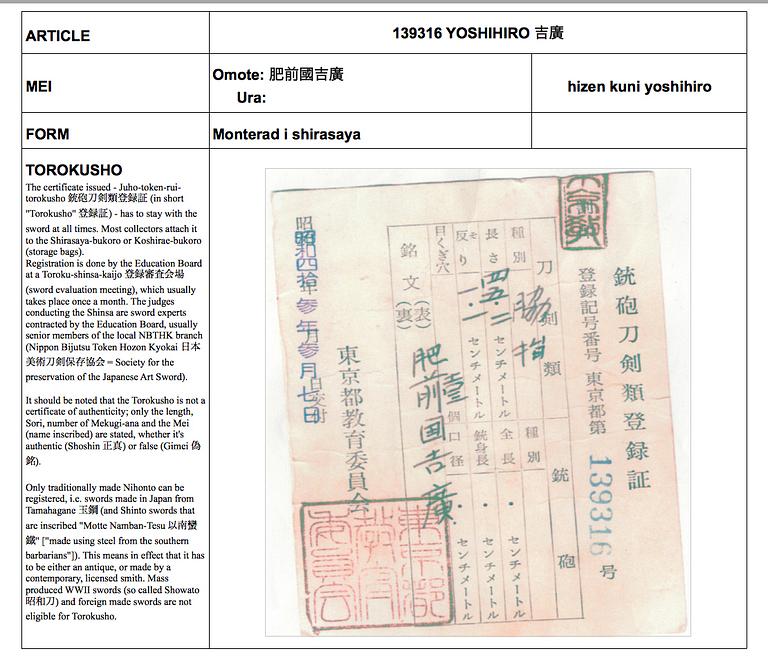 ARTICLE
139316 YOSHIHIRO 吉廣
MEI
Omote: 肥前國吉廣
Ura:
hizen kuni yoshihiro
FORM
Monterad i shirasaya
TOROKUSHO
The certificate issued - Juho-token-rui-
torokusho 銃砲刀剣類登録証 (in short
"Torokusho" 登録証) - has to stay with the
sword at all times. Most collectors attach it
to the Shirasaya-bukoro or Koshirae-bukoro
(storage bags).
Registration is done by the Education Board
at a Toroku-shinsa-kaijo 登録審査会場
(sword evaluation meeting), which usually
takes place once a month. The judges
conducting the Shinsa are sword experts
contracted by the Education Board, usually
senior members of the local NBTHK branch
(Nippon Bijutsu Token Hozon Kyokai 日本
美術刀剣保存協会 = Society for the
preservation of the Japanese Art Sword).
It should be noted that the Torokusho is not a
certificate of authenticity; only the length,
Sori, number of Mekugi-ana and the Mei
(name inscribed) are stated, whether it's
authentic (Shoshin 正真) or false (Gimei 偽
銘).
Only traditionally made Nihonto can be
registered, i.e. swords made in Japan from
Tamahagane 玉鋼 (and Shinto swords that
are inscribed "Motte Namban-Tesu 以南蠻
鐵" ["made using steel from the southern
barbarians"]). This means in effect that it has
to be either an antique, or made by a
contemporary, licensed smith. Mass
produced WWII swords (so called Showato
昭和刀) and foreign made swords are not
eligible for Torokusho.
銃砲刀剣類登録証
登録記号番号 東京都第 139316 号
刀剣類
銃砲
種別
脇指
種別
長さ
四五・二
センチメートル
全長
・
センチメートル
反り
一・一
センチメートル
銃身長
・
センチメートル
目くぎ穴
壹
個
口径
センチメートル
銘文
(表)
(裏)
肥前国吉廣
東京都教育委員会
昭和四拾参年参月七日